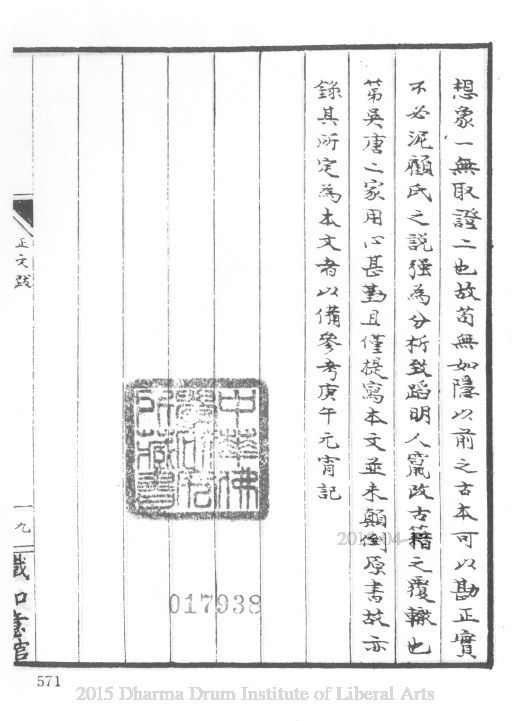 想象一無取證二也故苟無如隱以前之古本可以勘正實
不必泥顧氏之說强為分析致蹈明人竄改古籍之覆轍也
苐吳唐二家用心甚勤且僅提寫本文並未顛倒原書故亦
錄其所定為本文者以備參考庚午元宵記
正文跋
一九
中華佛
學研究
所藏書
017938
571
2015 Dharma Drum Institute of Liberal Arts